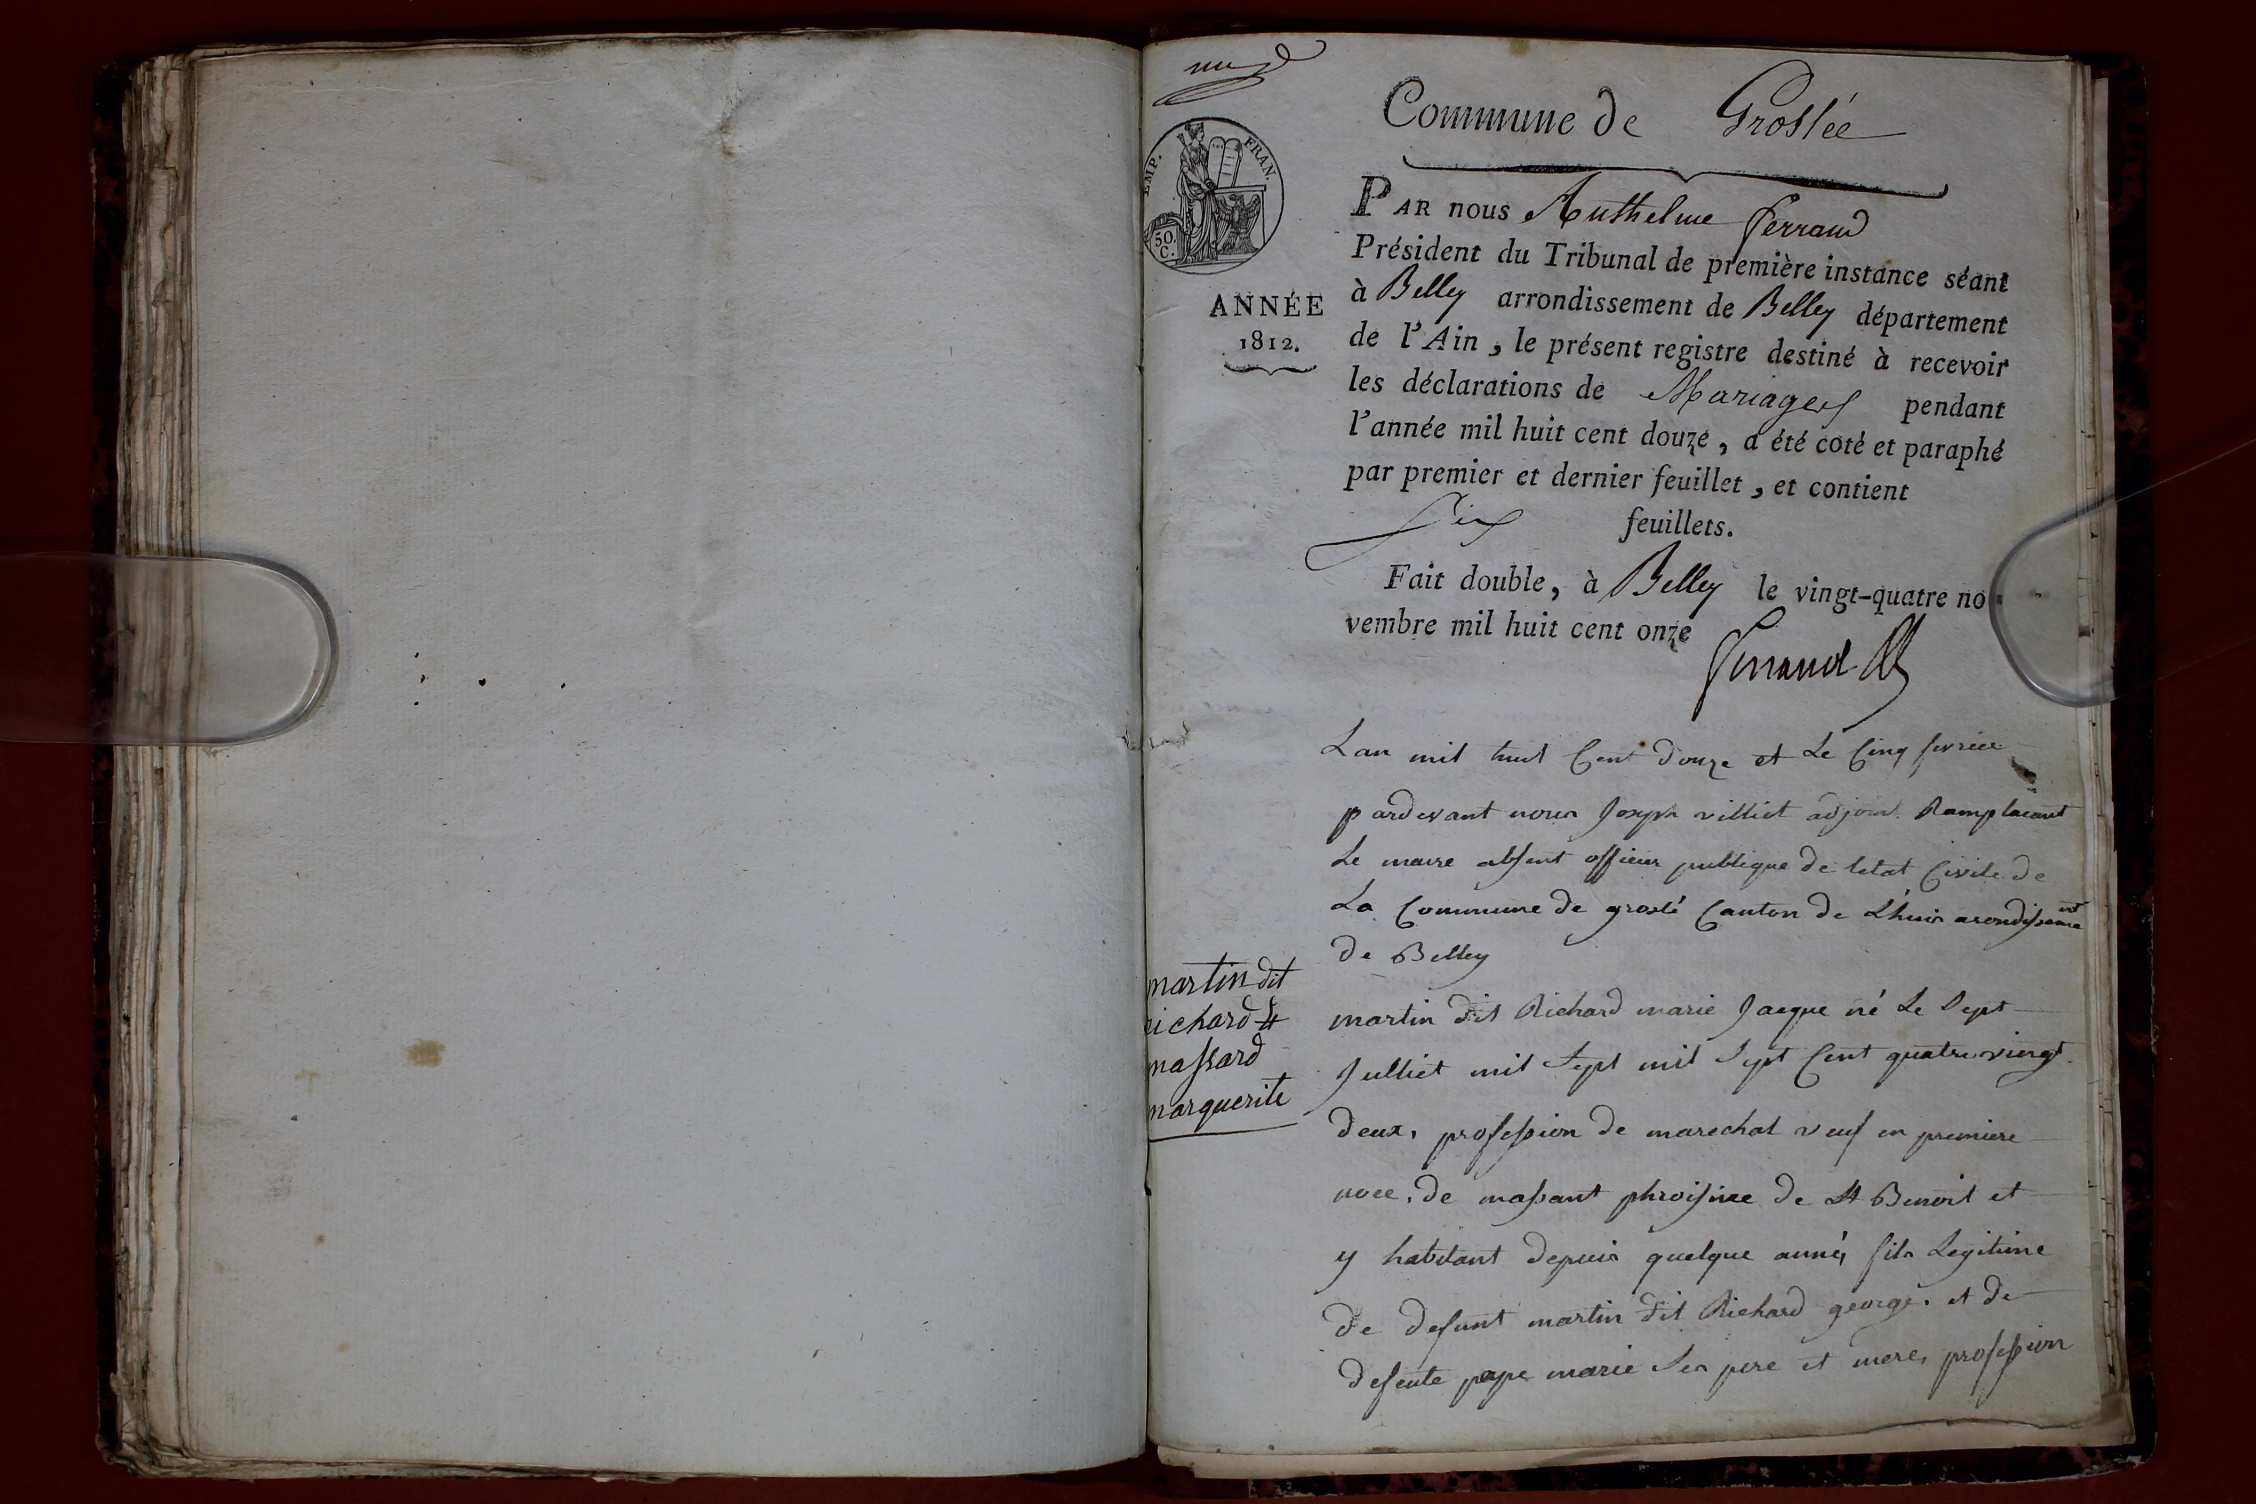 Commune de Groslée
EMP. FRAN.
50.
C.
ANNÉE
1812.
PAR nous Anthelme ferrand
Président du Tribunal de première instance séant
à Belley arrondissement de Belley département
de l'Ain, le présent registre destiné à recevoir
les déclarations de Mariages pendant
l'année mil huit cent douze, a été coté et paraphé
par premier et dernier feuillet, et contient
Six feuillets.
Fait double, à Belley le vingt-quatre no
vembre mil huit cent onze
ferrand
Lan mil huit Cent douze et Le Cinq fevrier
pardevant nous Joseph villiet adjoint Ramplacant
Le maire absent officier publique de letat Civile de
La Commune de groslé Canton de Lhuis arondissement
de Belley
martin dit
richard &
massard
marguerite
martin dit Richard marie Jacque né Le Sept
Julliet mil Sept mil Sept Cent quatre vingt
deux, profession de marechal veuf en premiere
noce, de massant phroisine de St Benoit et
y habitant depuis quelque année fils Legitime
de defunt martin dit Richard george. et de
defente pape marie Ses pere et mere, profession